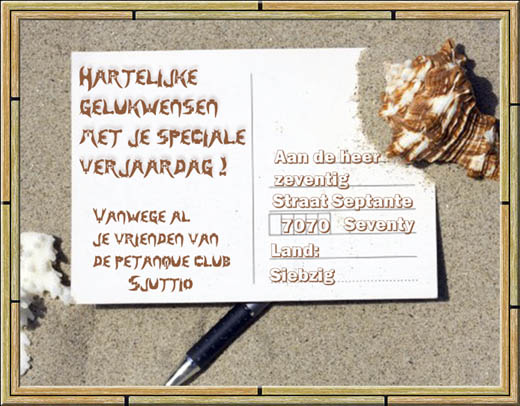 Hartelijke
gelukwensen
met je speciale
verjaardag !
Vanwege al
je vrienden van
de petanque club
Sjuttio
Aan de heer
zeventig
Straat Septante
7070 Seventy
Land:
Siebzig